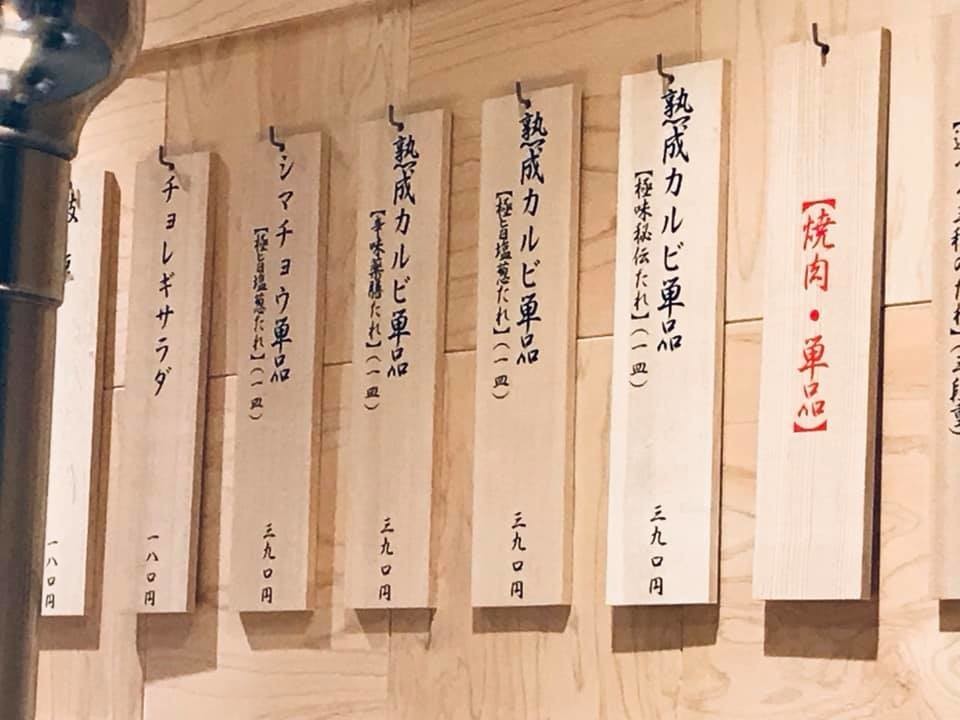 【焼肉・単品】
熟成カルビ単品
【極味秘伝たれ】(一皿)
三九〇円
熟成カルビ単品
【極旨塩葱たれ】(一皿)
三九〇円
熟成カルビ単品
【辛味薬膳たれ】(一皿)
三九〇円
シマチョウ単品
【極旨塩葱たれ】(一皿)
三九〇円
チョレギサラダ
一八〇円
一八〇円